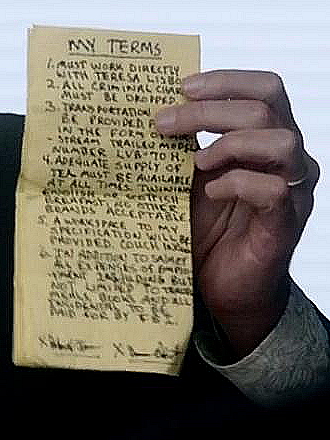 MY TERMS
1. MUST WORK DIRECTLY
WITH TERESA LISBO
2. ALL CRIMINAL CHAR
MUST BE DROPPED
3. TRANSPORTATION
BE PROVIDED F
IN THE FORM OF
STREAM TRAILER MODEL
NUMBER
4. ADEQUATE SUPPLY OF
TEA MUST BE AVAILABLE
AT ALL TIMES. TWINING
BREAKFAST OR SCOTTISH
BONDS ACCEPTABLE
5. A WORKSPACE TO MY
SPECIFICATION WILL BE
PROVIDED. COUCH
6. IN ADDITION TO SALARY
ALL EXPENSES OF EMPLO
BUT
NOT LIMITED TO
BOOKS AND ALL
TO BE
PAID FOR BY F.B.I.
X
X